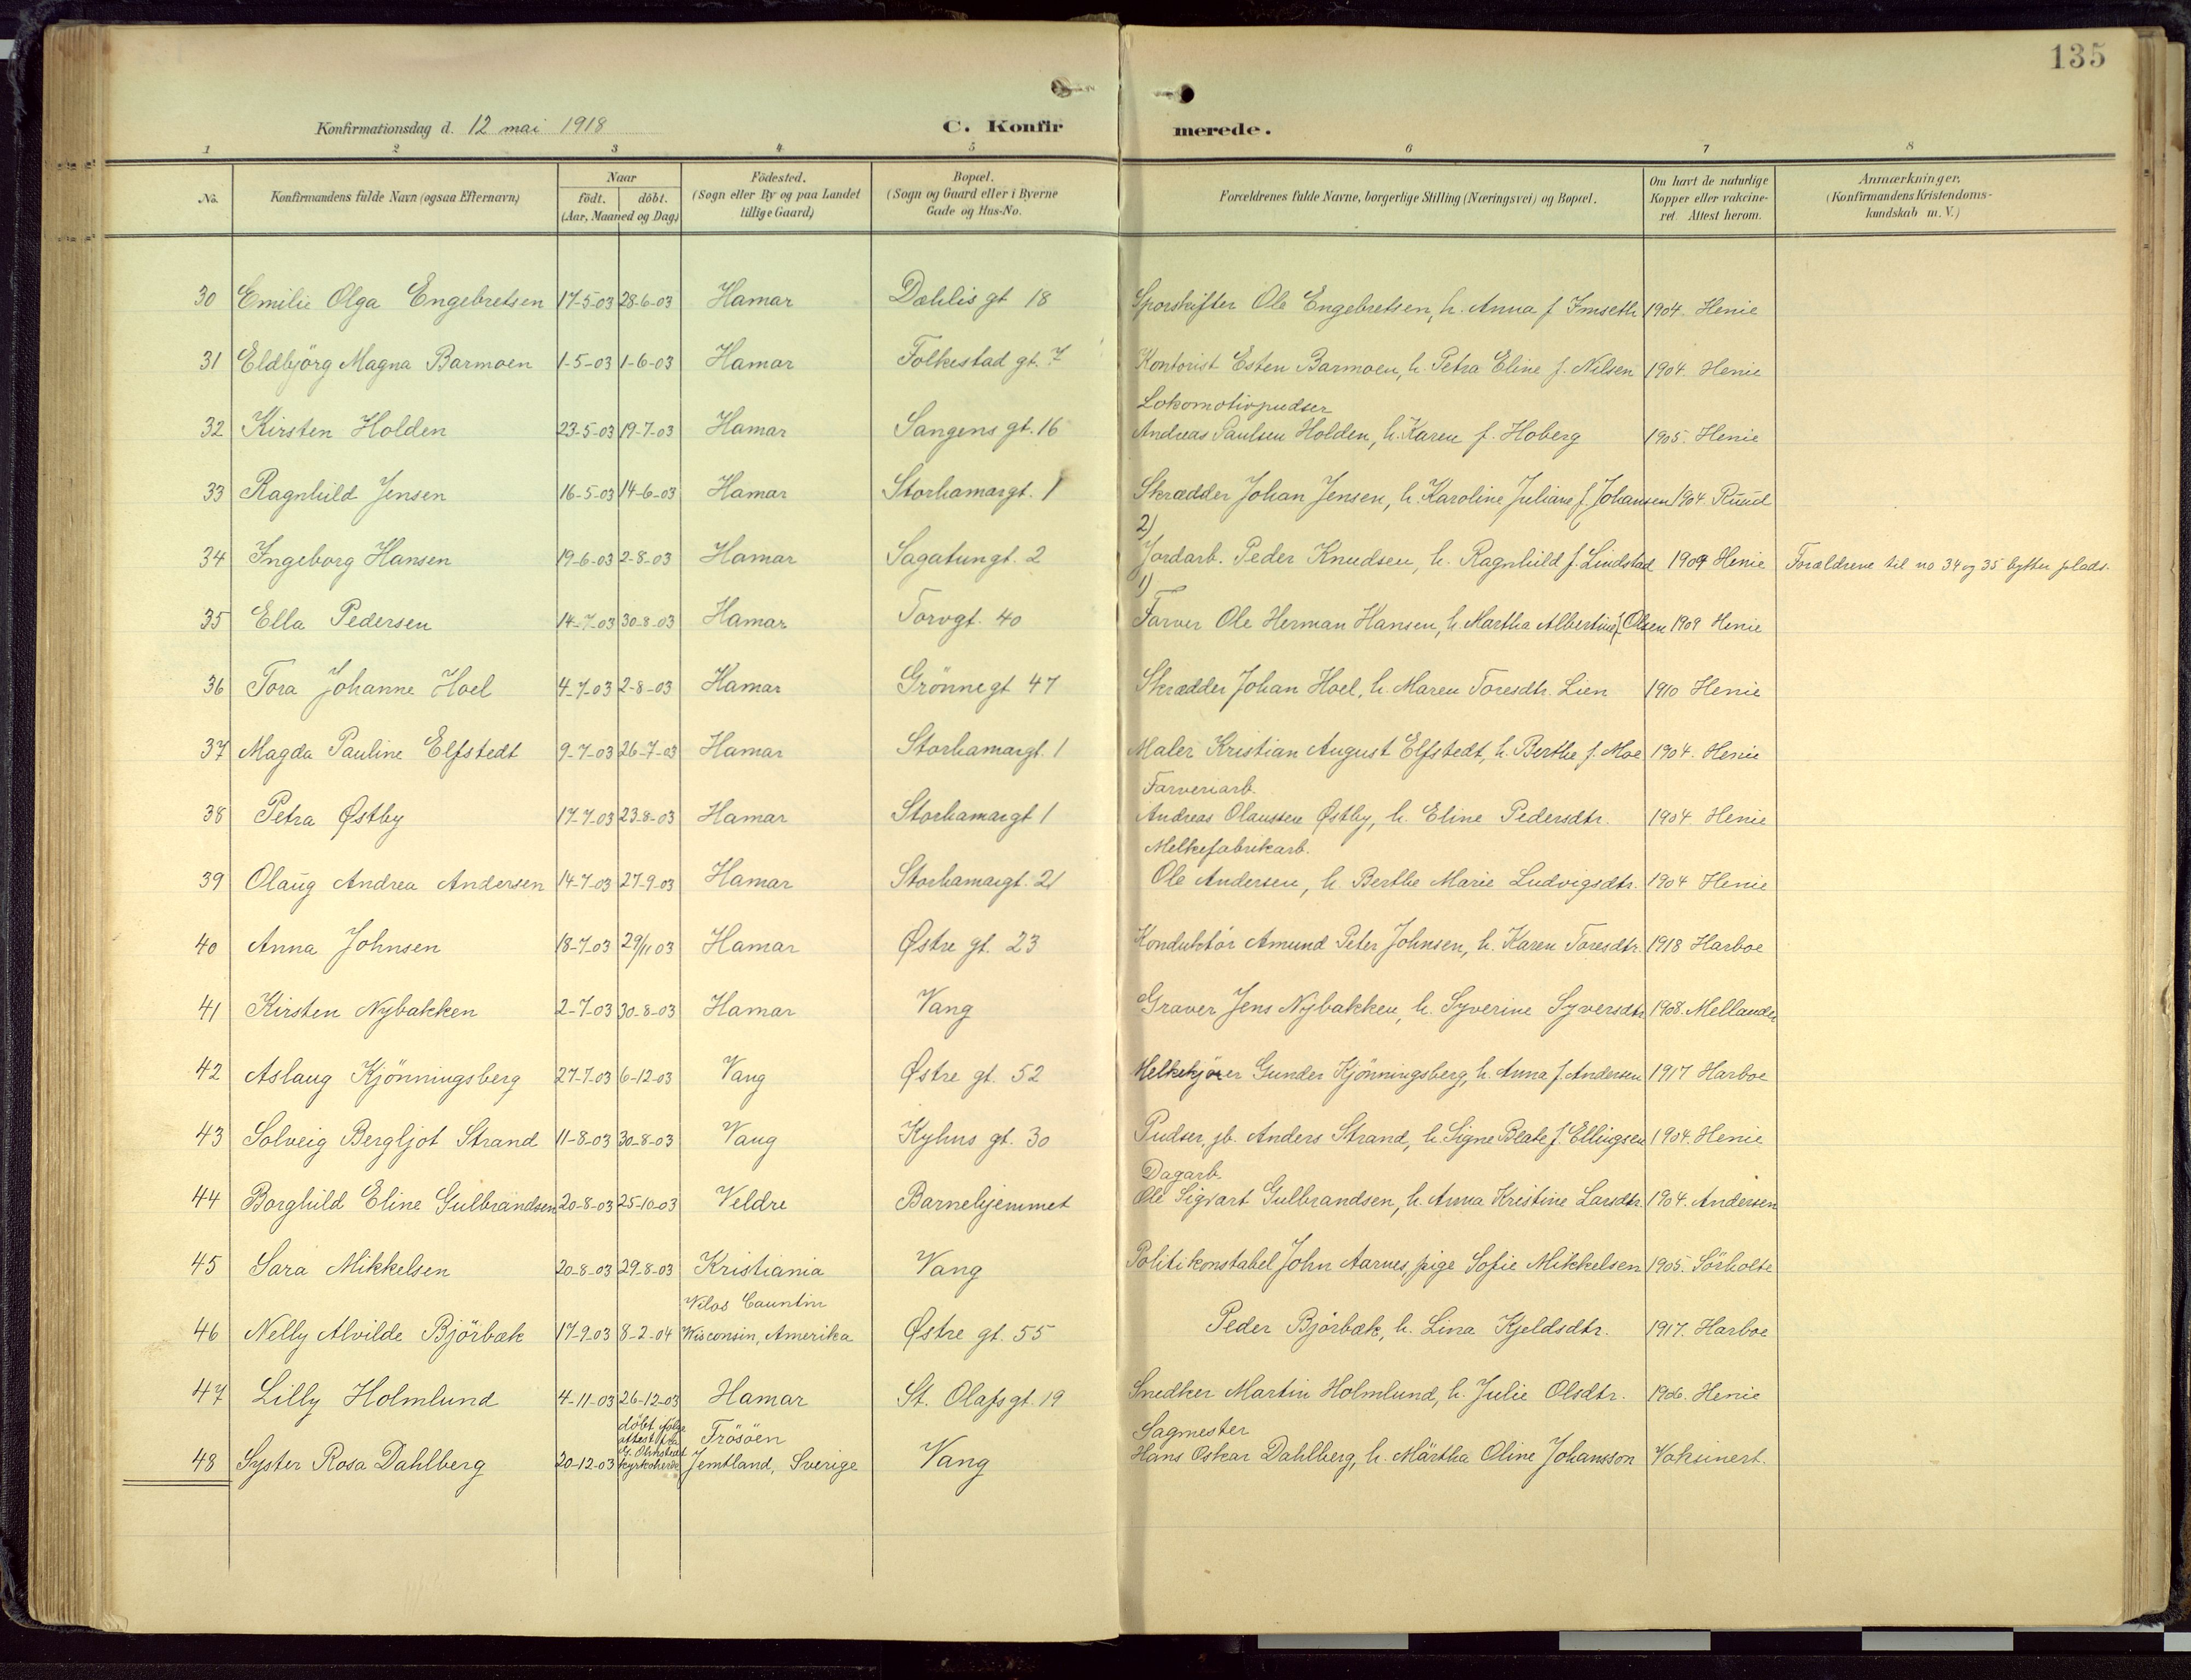 135
Konfirmationsdag d. 12 mai 1918 C. Konfirmerede.
1 2 3 4 5 6 7 8
No. Konfirmandens fulde Navn (ogsaa Efternavn) Naar födt. döbt. (Aar, Maaned og Dag) Födested. (Sogn eller By og paa Landet tillige Gaard) Bopæl. (Sogn og Gaard eller i Byerne Gade og Hus-No. Forældrenes fulde Navne, borgerlige Stilling (Næringsvei) og Bopæl. Om havt de naturlige Kopper eller vakcineret. Attest herom. Anmærkninger. (Konfirmandens Kristendomskundskab m. V.)
30 Emilie Olga Engebretsen 17-5-03 28-6-03 Hamar Dahlis gt 18 Sporskifter Ole Engebretsen, h. Anna f Imseth 1904. Henie
31 Eldbjörg Magna Barmoen 1-5-03 1-6-03 Hamar Folkestad gt. 7 Kontorist Esten Barmoen, h. Petra Eline f. Nilsen 1904. Henie
Lokomotivpudser
32 Kirsten Holden 23-5-03 19-7-03 Hamar Sangens gt. 16 Andreas Paulsen Holden, h. Karen f. Hoberg 1905. Henie
33 Ragnhild Jensen 16-5-03 14-6-03 Hamar Storhamargt. 1 Skrædder Johan Jensen, h. Karoline Juliane f. Johansen 1904. Ruud
2)
34 Ingeborg Hansen 19-6-03 2-8-03 Hamar Sagatungt. 2 Jordarb. Peder Knudsen, h. Ragnhild f. Lindstad 1909 Henie Forældrene til no 34 og 35 bytter plads.
1)
35 Ella Pedersen 14-7-03 30-8-03 Hamar Torvgt. 40 Farver Ole Herman Hansen, h. Martha Albertine f. Olsen 1909 Henie
36 Tora Johanne Hoel 4-7-03 2-8-03 Hamar Grönnegt 47 Skrædder Johan Hoel, h. Maren Toresdtr. Lien 1910 Henie
37 Magda Pauline Elfstedt 9-7-03 26-7-03 Hamar Storhamargt. 1 Maler Kristian August Elfstedt, h. Berthe f. Moe 1904. Henie
Farveriarb.
38 Petra Østby 17-7-03 23-8-03 Hamar Storhamargt 1 Andreas Olaussen Østby, h. Eline Pedersdtr. 1904. Henie
Melkefabrikarb.
39 Olaug Andrea Andersen 14-7-03 27-9-03 Hamar Storhamargt. 21 Ole Andersen, h. Berthe Marie Ludvigsdtr. 1904 Henie
40 Anna Johnsen 18-7-03 29/11 03 Hamar Østre gt. 23 Konduktör Amund Peter Johnsen, h. Karen Toresdtr. 1918 Harboe
41 Kirsten Nybakken 2-7-03 30-8-03 Hamar Vang Graver Jens Nybakken, h. Syverine Syversdtr 1908. Mellander
42 Aslaug Kjönningsberg 27-7-03 6-12-03 Vang Østre gt. 52 Melkekjörer Gunder Kjönningsberg, h. Anna f. Andersen 1917 Harboe
43 Solveig Bergljot Strand 11-8-03 30-8-03 Vang Kyhus gt. 30 Pudser, jb. Anders Strand, h. Signe Beate f. Ellingsen 1904. Henie
Dagarb.
44 Borghild Eline Gulbrandsen 20-8-03 25-10-03 Veldre Barnehjemmet Ole Sigvart Gulbrandsen, h. Anna Kristine Larsdtr. 1904. Andersen
45 Sara Mikkelsen 20-8-03 29-8-03 Kristiania Vang Politikonstabel John Aarnes, pige Sofie Mikkelsen 1905. Sörholte
Vilas Cauntin
46 Nelly Alvilde Björbæk 17-9-03 8-2-04 Wisconsin, Amerika Østre gt. 55 Peder Björbæk, h. Lina Kjeldsdtr. 1917. Harboe
47 Lilly Holmlund 4-11-03 26-12-03 Hamar St. Olafs gt. 19 Snedker Martin Holmlund, h. Julie Olsdtr. 1906. Henie
döbt ifölge attest fra Frösöen Sagmester
48 Syster Rosa Dahlberg 20-12-03 kyrkoherde Jemtland, Sverige Vang Hans Oskar Dahlberg, h. Märtha Oline Johansson Vaksinert.